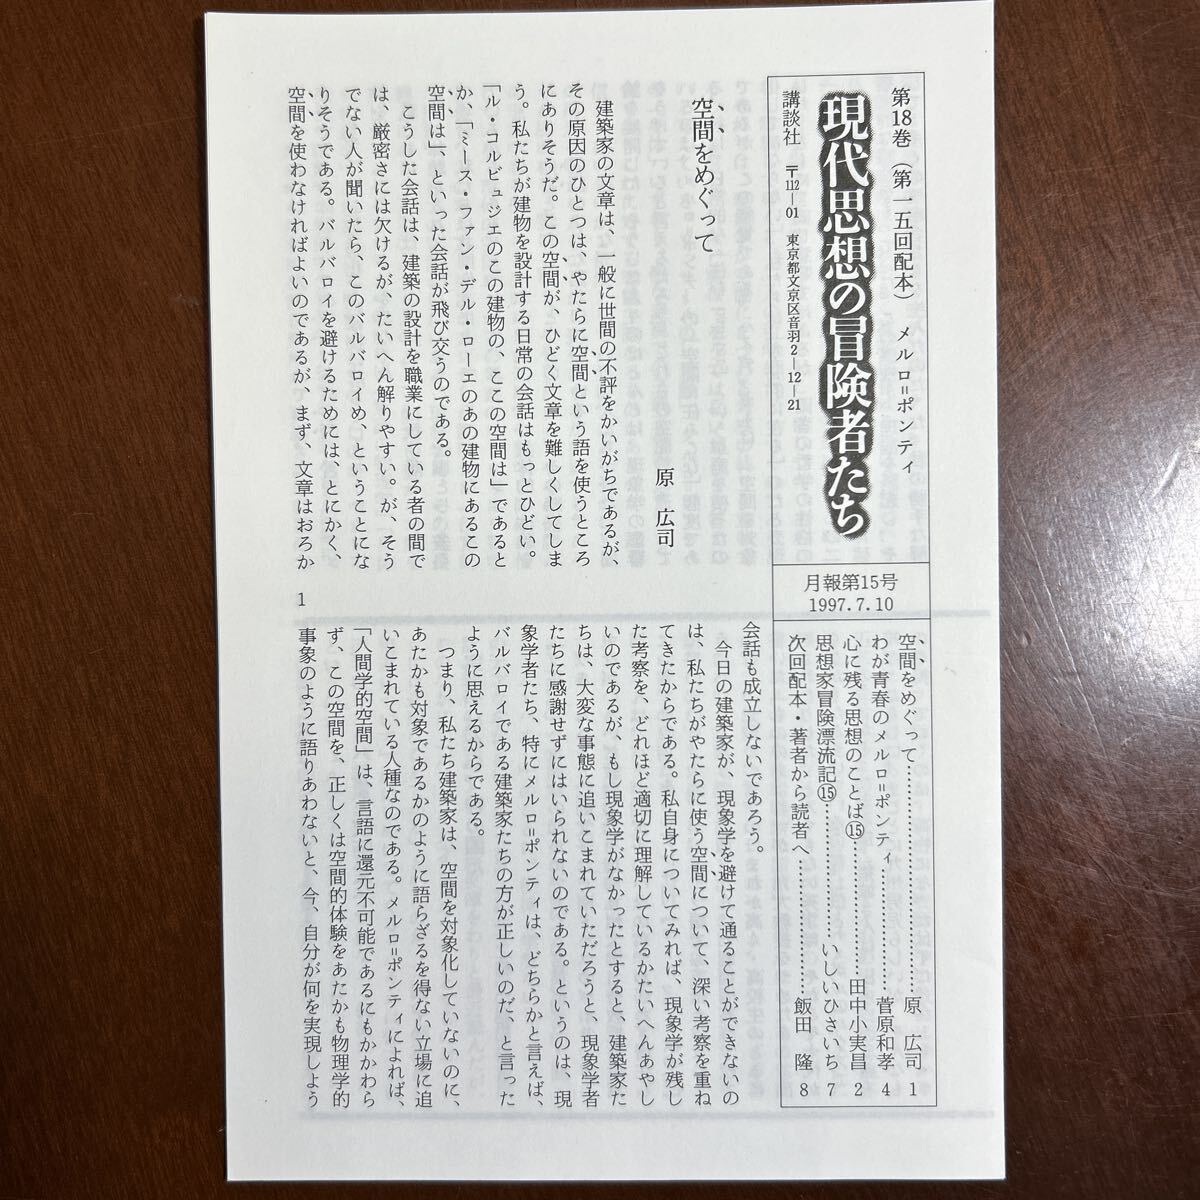 第18巻（第一五回配本） メルロ゠ポンティ
現代思想の冒険者たち
講談社 〒112―01 東京都文京区音羽2―12―21
月報第15号
1997.7.10
空間をめぐって……………………原 広司 1
わが青春のメルロ゠ポンティ…………菅原和孝 4
心に残る思想のことば⑮……………田中小実昌 2
思想家冒険漂流記⑮……………いしいひさいち 7
次回配本・著者から読者へ……………飯田 隆 8
空間をめぐって
原 広司
建築家の文章は、一般に世間の不評をかいがちであるが、
その原因のひとつは、やたらに空間という語を使うところ
にありそうだ。この空間が、ひどく文章を難しくしてしま
う。私たちが建物を設計する日常の会話はもっとひどい。
「ル・コルビュジエのこの建物の、ここの空間は」であると
か、「ミース・ファン・デル・ローエのあの建物にあるこの
空間は」、といった会話が飛び交うのである。
こうした会話は、建築の設計を職業にしている者の間で
は、厳密さには欠けるが、たいへん解りやすい。が、そう
でない人が聞いたら、このバルバロイめ、ということにな
りそうである。バルバロイを避けるためには、とにかく、
空間を使わなければよいのであるが、まず、文章はおろか
1
会話も成立しないであろう。
今日の建築家が、現象学を避けて通ることができないの
は、私たちがやたらに使う空間について、深い考察を重ね
てきたからである。私自身についてみれば、現象学が残し
た考察を、どれほど適切に理解しているかたいへんあやし
いのであるが、もし現象学がなかったとすると、建築家た
ちは、大変な事態に追いこまれていただろうと、現象学者
たちに感謝せずにはいられないのである。というのは、現
象学者たち、特にメルロ゠ポンティは、どちらかと言えば、
バルバロイである建築家たちの方が正しいのだ、と言った
ように思えるからである。
つまり、私たち建築家は、空間を対象化していないのに、
あたかも対象であるかのように語らざるを得ない立場に追
いこまれている人種なのである。メルロ゠ポンティによれば、
「人間学的空間」は、言語に還元不可能であるにもかかわら
ず、この空間を、正しくは空間的体験をあたかも物理学的
事象のように語りあわないと、今、自分が何を実現しよう